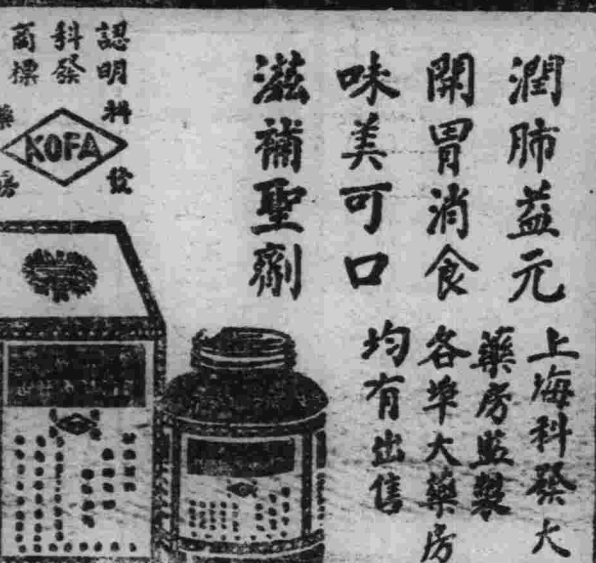 潤肺益元
開胃消食
味美可口
滋補聖劑
上海科發大
藥房監製
各埠大藥房
均有出售
認明
科發
商標
科發
藥房
KOFA